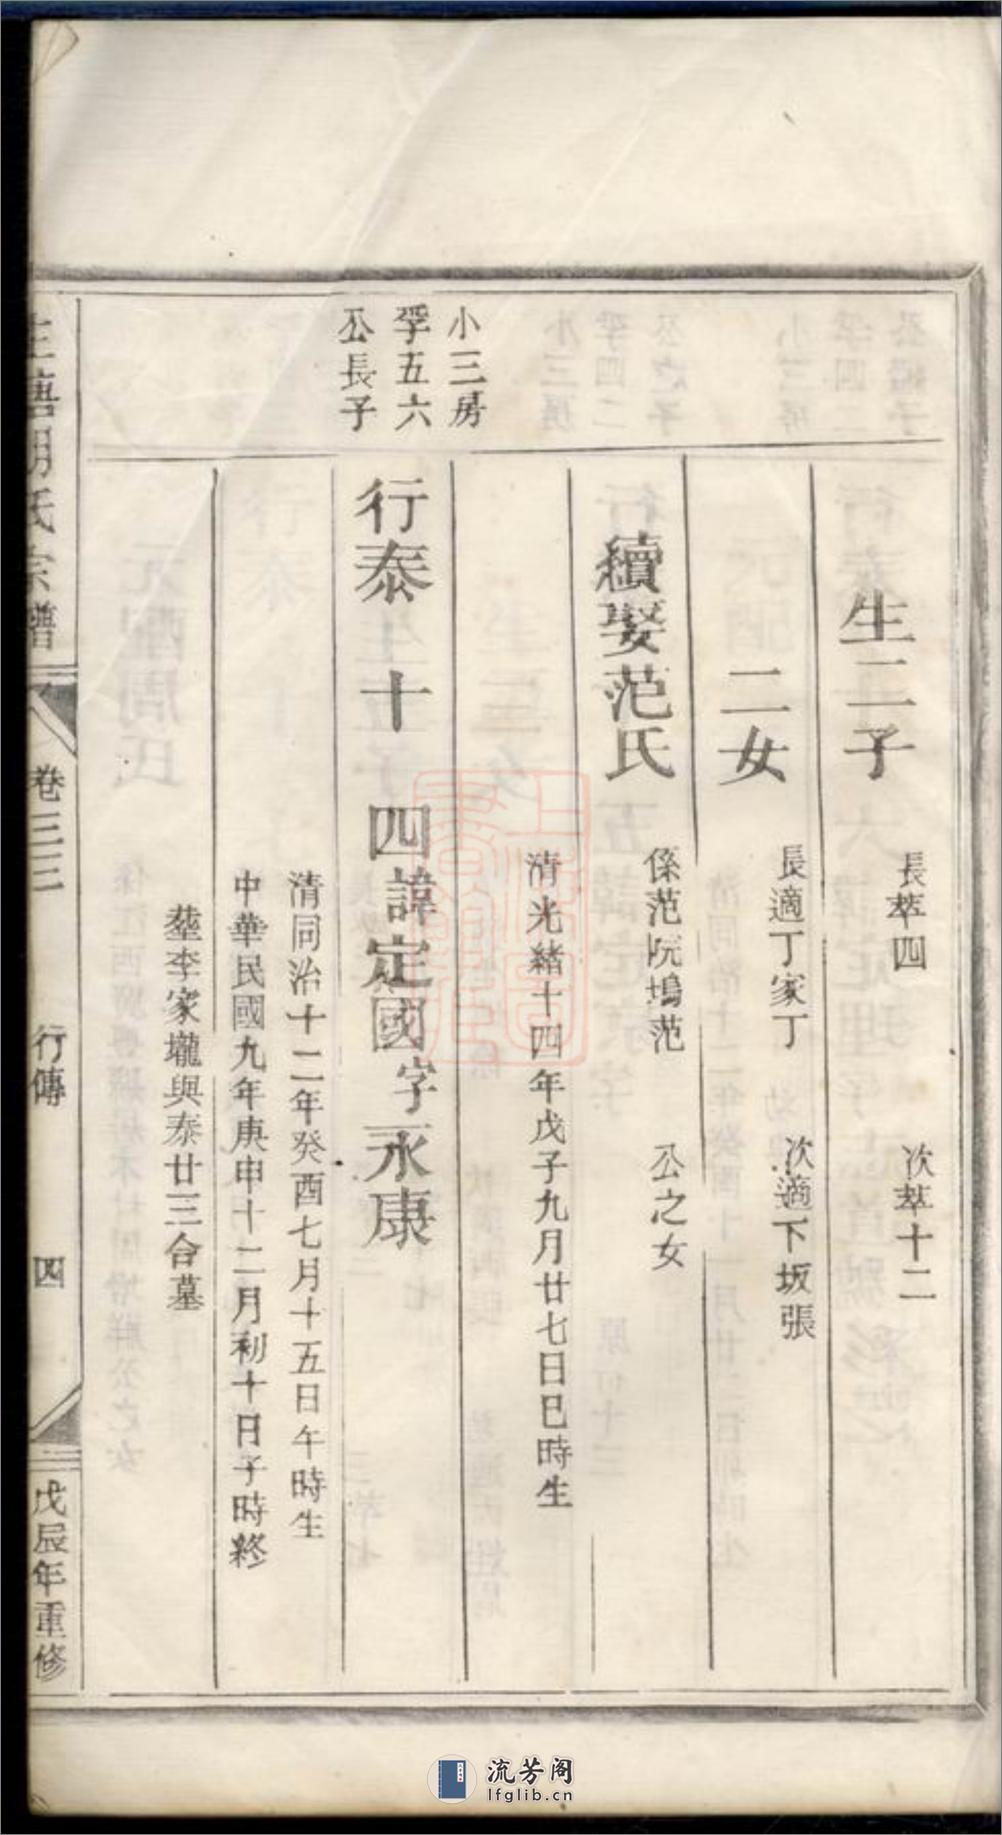 生二子 長萃四 次萃十二
二女 長適丁家丁 次適下坂張
續娶范氏 係范阮塢范 公之女
清光緒十四年戊子九月廿七日巳時生
小三房
孚五六
公長子
行泰十四諱定國字永康
清同治十二年癸酉七月十五日午時生
中華民國九年庚申十二月初十日子時終
塟李家壠與泰廿三合墓
胡氏宗譜 卷三三 行傳 四 戊辰年重修
流芳阁
lfglib.cn